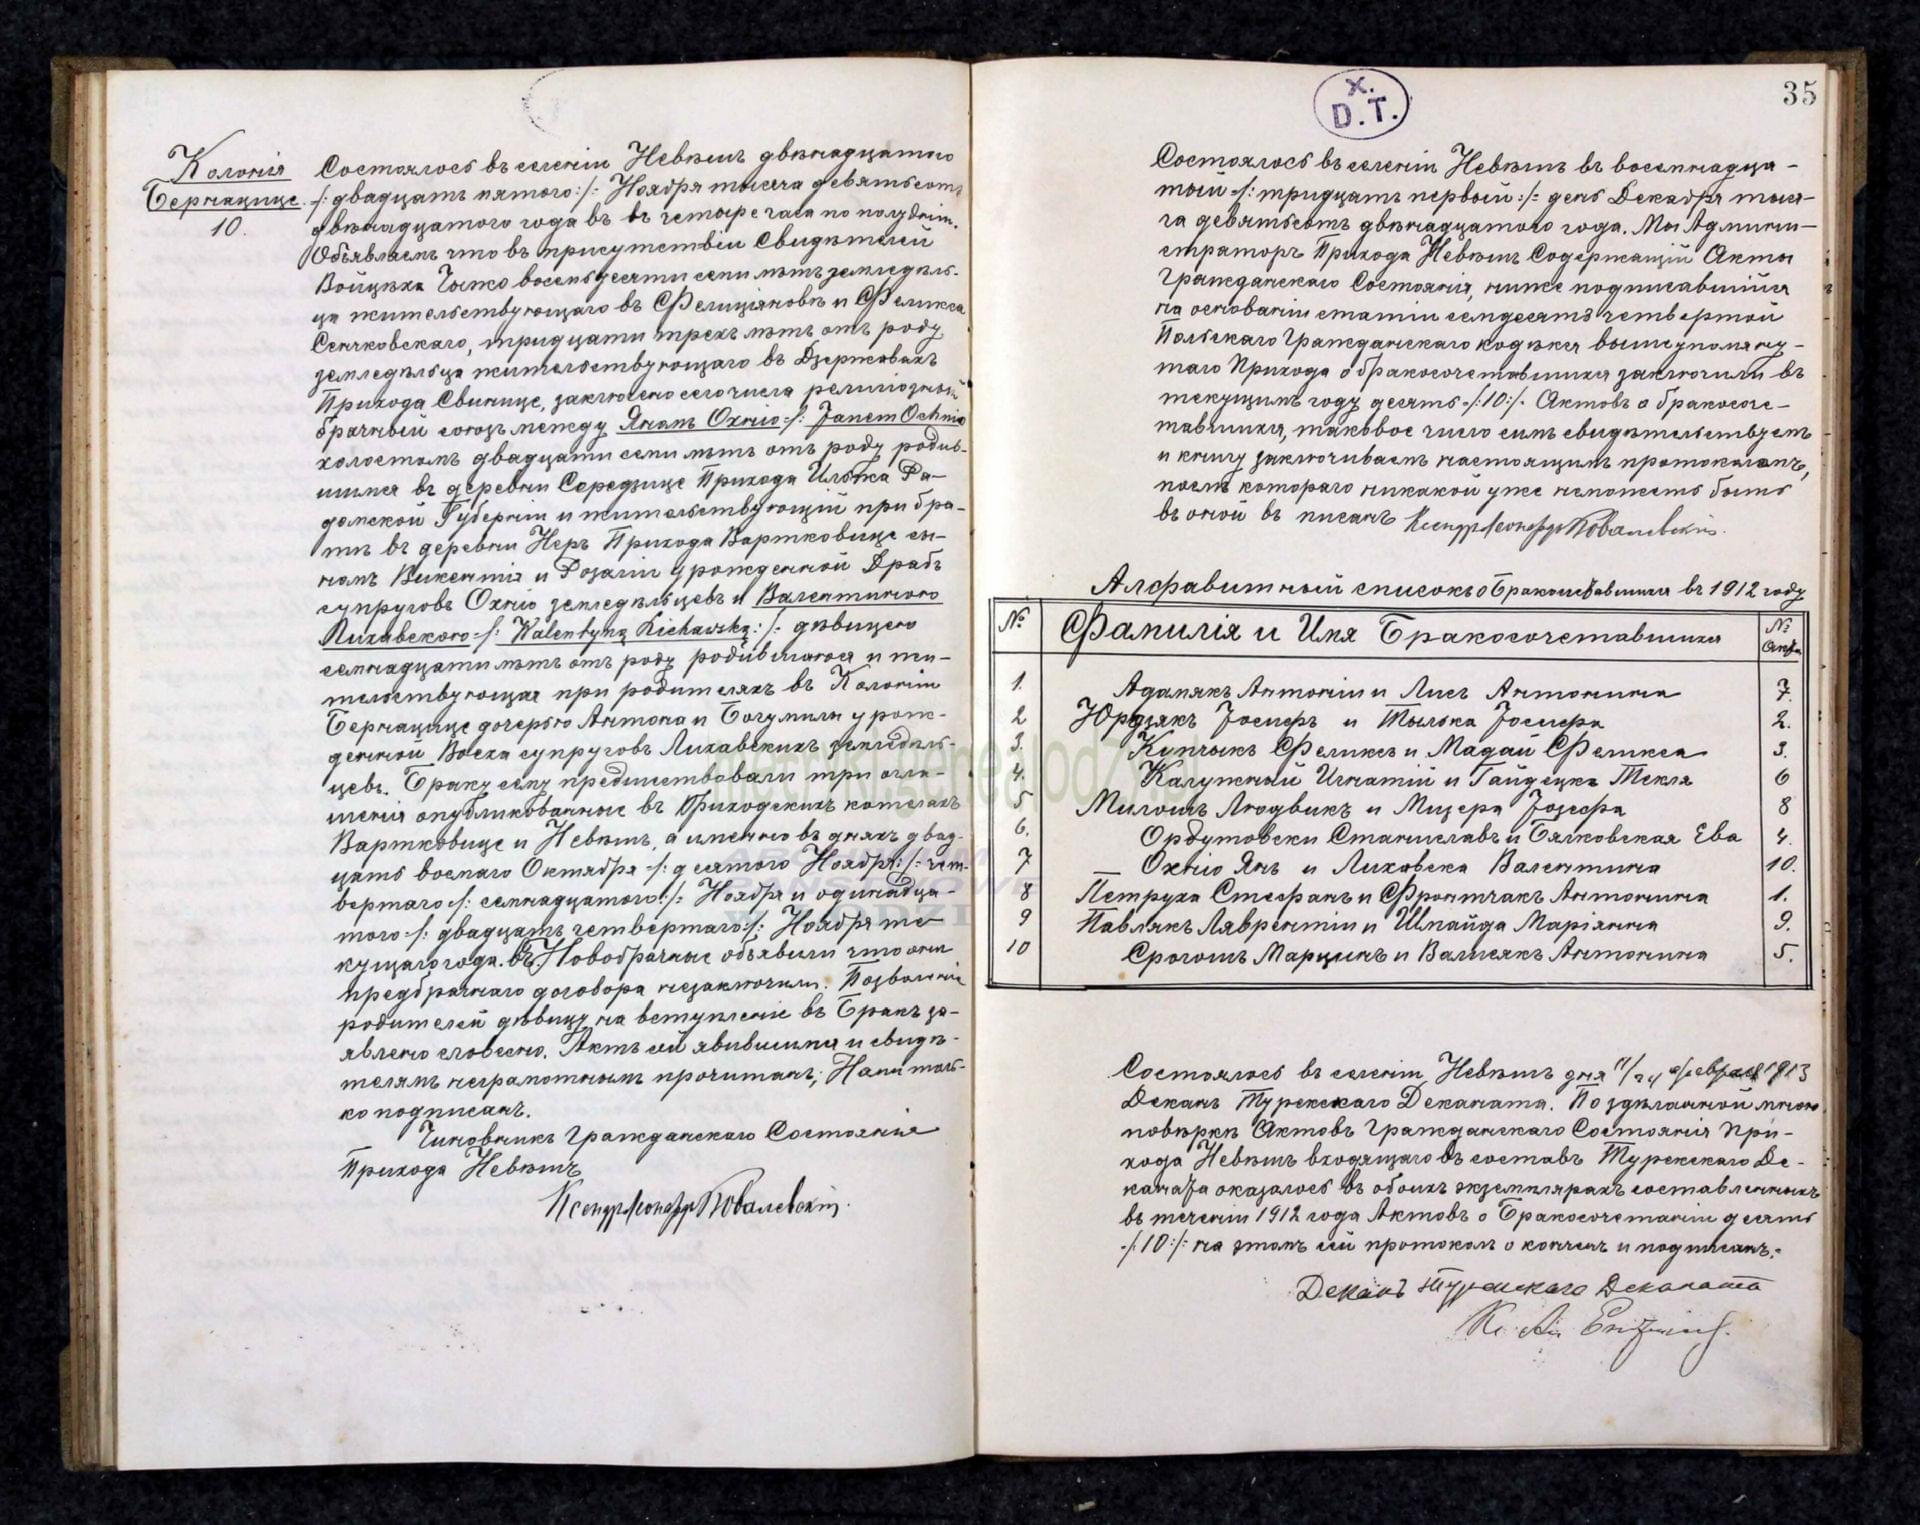 Колонія
Бернацице.
10.
Состоялось въ селеніи Невѣшъ двѣнадцатаго
-/: двадцать пятого :/- Ноября тысяча девятьсотъ
двѣнадцатого года въ въ четыре часа по полудни.
Объявляемъ что въ присутствіи Свидѣтелей
Войцѣха восемьдесяти семи лѣтъ земледѣль-
ца жительствующаго въ Фелиціяновѣ и Феликса
Сенчковскаго, тридцати трехъ лѣтъ отъ роду
земледѣльца жительствующаго въ Дзержовахъ
Прихода Свинице, заключено сего числа религіозный
брачный союзъ между Яномъ Охніо -/: Janem Ochnio
холостомъ двадцати семи лѣтъ отъ роду родив-
шимся въ деревни Середзице Прихода Илжа Ра-
домской Губерніи и жительствующій при бра-
тѣ въ деревни Неръ Прихода Вартковице сы-
номъ Викентія и Розаліи урожденной Драбъ
супруговъ Охніо земледѣльцевъ и Валентиною
Лихавскою -/: Walentyną Lichawską :/- дѣвицею
семнадцати лѣтъ отъ роду родившаюся и жи-
тельствующая при родителяхъ въ Колоніи
Бернацице дочерью Антона и Богумилы урож-
денной супруговъ Лихавскихъ земледѣль-
цевъ. Браку сему предшествовали три огла-
шенія опубликованные въ Приходскихъ костелахъ
Вартковице и Невѣшъ, а именно въ дняхъ двад-
цать восмаго Октября -/: десятого Ноября :/- чет-
вертаго -/: семнадцатого :/- Ноября и одинадца-
того -/: двадцать четвертаго :/- Ноября те-
кущаго года. Новобрачные объявили что они
предбрачнаго договора незаключили. Позволеніе
родителей дѣвицы на вступленіе въ Бракъ за-
явлено словесно. Актъ сей явившимся и свидѣ-
телямъ неграмотнымъ прочитанъ; Нами толь-
ко подписанъ.
Чиновникъ Гражданскаго Состоянія
Прихода Невѣшъ
Ксендзъ Леонардъ Ковалевскій.
X.
D.T.
35
Состоялось въ селеніи Невѣшъ въ восемнадца-
тый -/: тридцать первый :/- день Декабря тыся-
ча девятьсотъ двѣнадцатого года. Мы Админи-
страторъ Прихода Невѣшъ Содержащій Акты
Гражданскаго Состоянія, ниже подписавшійся
на основаніи статіи семдесятъ четвертой
Польскаго Гражданскаго кодекса вышеупомяну-
таго Прихода о бракосочетавшихся заключили въ
текущимъ году десять -/:10:/- Актовъ о бракосоче-
тавшихся, таковое число симъ свидѣтельствуемъ
и книгу заключиваемъ настоящимъ протоколомъ,
послѣ котораго никакой уже неможетъ быть
въ оной въ писанъ Ксендзъ Леонардъ Ковалевскій.
Алфавитный списокъ о Бракосочетавшихся въ 1912 году
№ Фамилія и Имя Бракосочетавшихся № Акта
1. Адамякъ Антоніи и Лисъ Антонина 7.
2 Юрдзякъ Іосифъ и Тылька Іосифа 2.
3. Купчыкъ Феликсъ и Мадай Феликса 3.
4. Калужный Игнатій и Гайдецка Текля 6
5 Милошъ Людвикъ и Мицера Іозефа 8
6. Ордутовски Станиславъ и Бялковская Ева 4.
7 Охніо Янъ и Лиховска Валентина 10.
8 Петруха Стефанъ и Фронтчакъ Антонина 1.
9 Павлякъ Лаврентіи и Шпайда Маріянна 9.
10 Срогошъ Марцинъ и Валисякъ Антонина 5.
Состоялось въ селеніи Невѣшъ дня 11/24 февраля 1913
Деканъ Турекскаго Деканата. По здѣланной мною
повѣркѣ Актовъ Гражданскаго Состоянія При-
хода Невѣшъ входящаго въ составъ Турекскаго Де-
каната оказалось въ обоихъ экземплярахъ составленныхъ
въ теченіи 1912 года Актовъ о Бракосочетаніи десять
-/:10:/- на этомъ сей протоколъ о конченъ и подписанъ.-
Деканъ Турекскаго Деканата